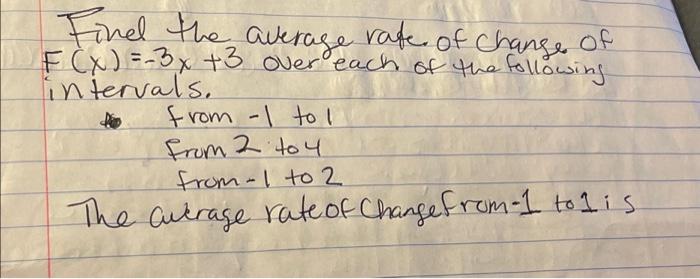 Find the average rate of change of
F(x) = -3x +3 over each of the following
intervals.
from -1 to 1
from 2 to 4
from -1 to 2
The average rate of Change from -1 to 1 is